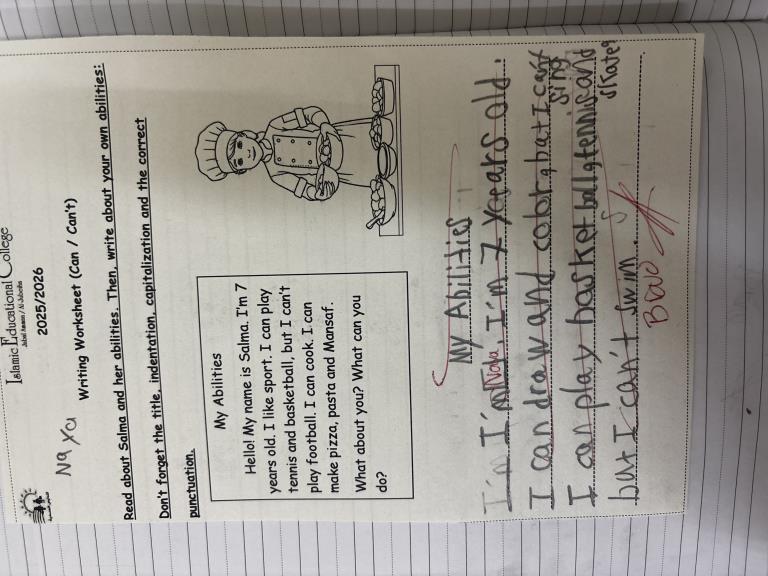 Islamic Educational College
Jabal Amman / Al-Jubeiha
2025/2026
Writing Worksheet (Can / Can't)
Read about Salma and her abilities. Then, write about your own abilities:
Don't forget the title, indentation, capitalization and the correct
punctuation.
My Abilities
Hello! My name is Salma. I'm 7
years old. I like sport. I can play
tennis and basketball, but I can't
play football. I can cook. I can
make pizza, pasta and Mansaf.
What about you? What can you
do?
My Abilities
I'm I'm I'm 7 yeears old.
I can draw and color, but I can't
sing
I can play basket ball, tennis and
skates
but I can't swim.